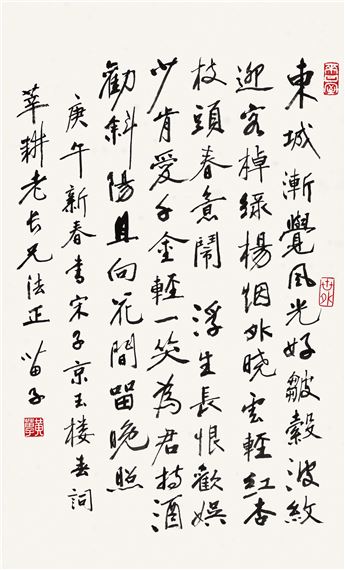 東城漸覺風光好皺縠波紋
迎客棹綠楊烟外曉雲輕紅杏
枝頭春意鬧 浮生長恨歡娛
少肯愛千金輕一笑為君持酒
勸斜陽且向花間留晚照
庚午新春書宋子京玉楼春詞
莘耕老长兄法正 苗子